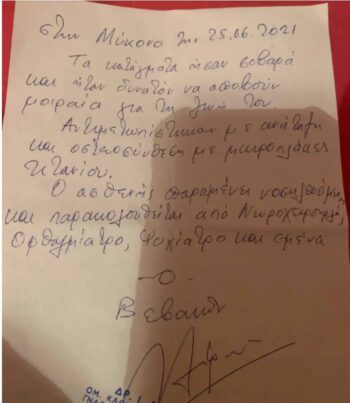 στην Μύκονο την 25.06.2021
Τα κατάγματα ήσαν σοβαρά
και ήταν δυνατόν να αποβούν
μοιραία για τη ζωή του.
Αντιμετωπίστηκαν με ανάταξη
και οστεοσύνθεση με μικροπλάκες
τιτανίου.
Ο ασθενής παραμένει νοσηλευόμενος
και παρακολουθείται από Νευροχειρουργό,
Οφθαλμίατρο, Ψυχίατρο και εμένα
-Ο-
Βεβαιών
ΔΡ.